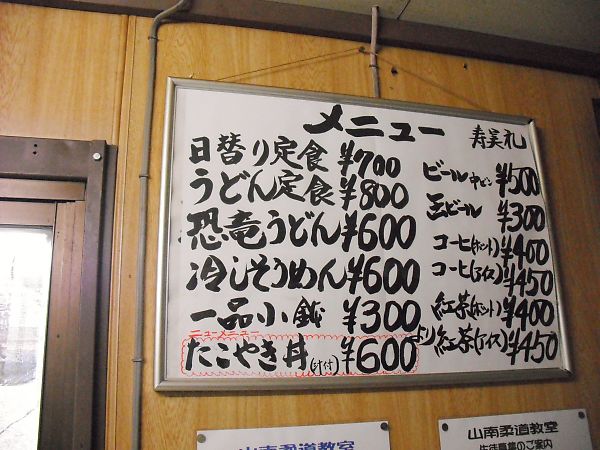 メニュー
寿美礼
日替り定食 ¥700
うどん定食 ¥800
恐竜うどん ¥600
冷しそうめん ¥600
一品小鉢 ¥300より
ニューメニュー
たこやき丼(汁付) ¥600
ビール 中ビン ¥500
缶ビール ¥300
コーヒ(ホット) ¥400
コーヒ(アイス) ¥450
紅茶(ホット) ¥400
紅茶(アイス) ¥450
山南柔道教室
山南柔道教室
生徒募集のご案内